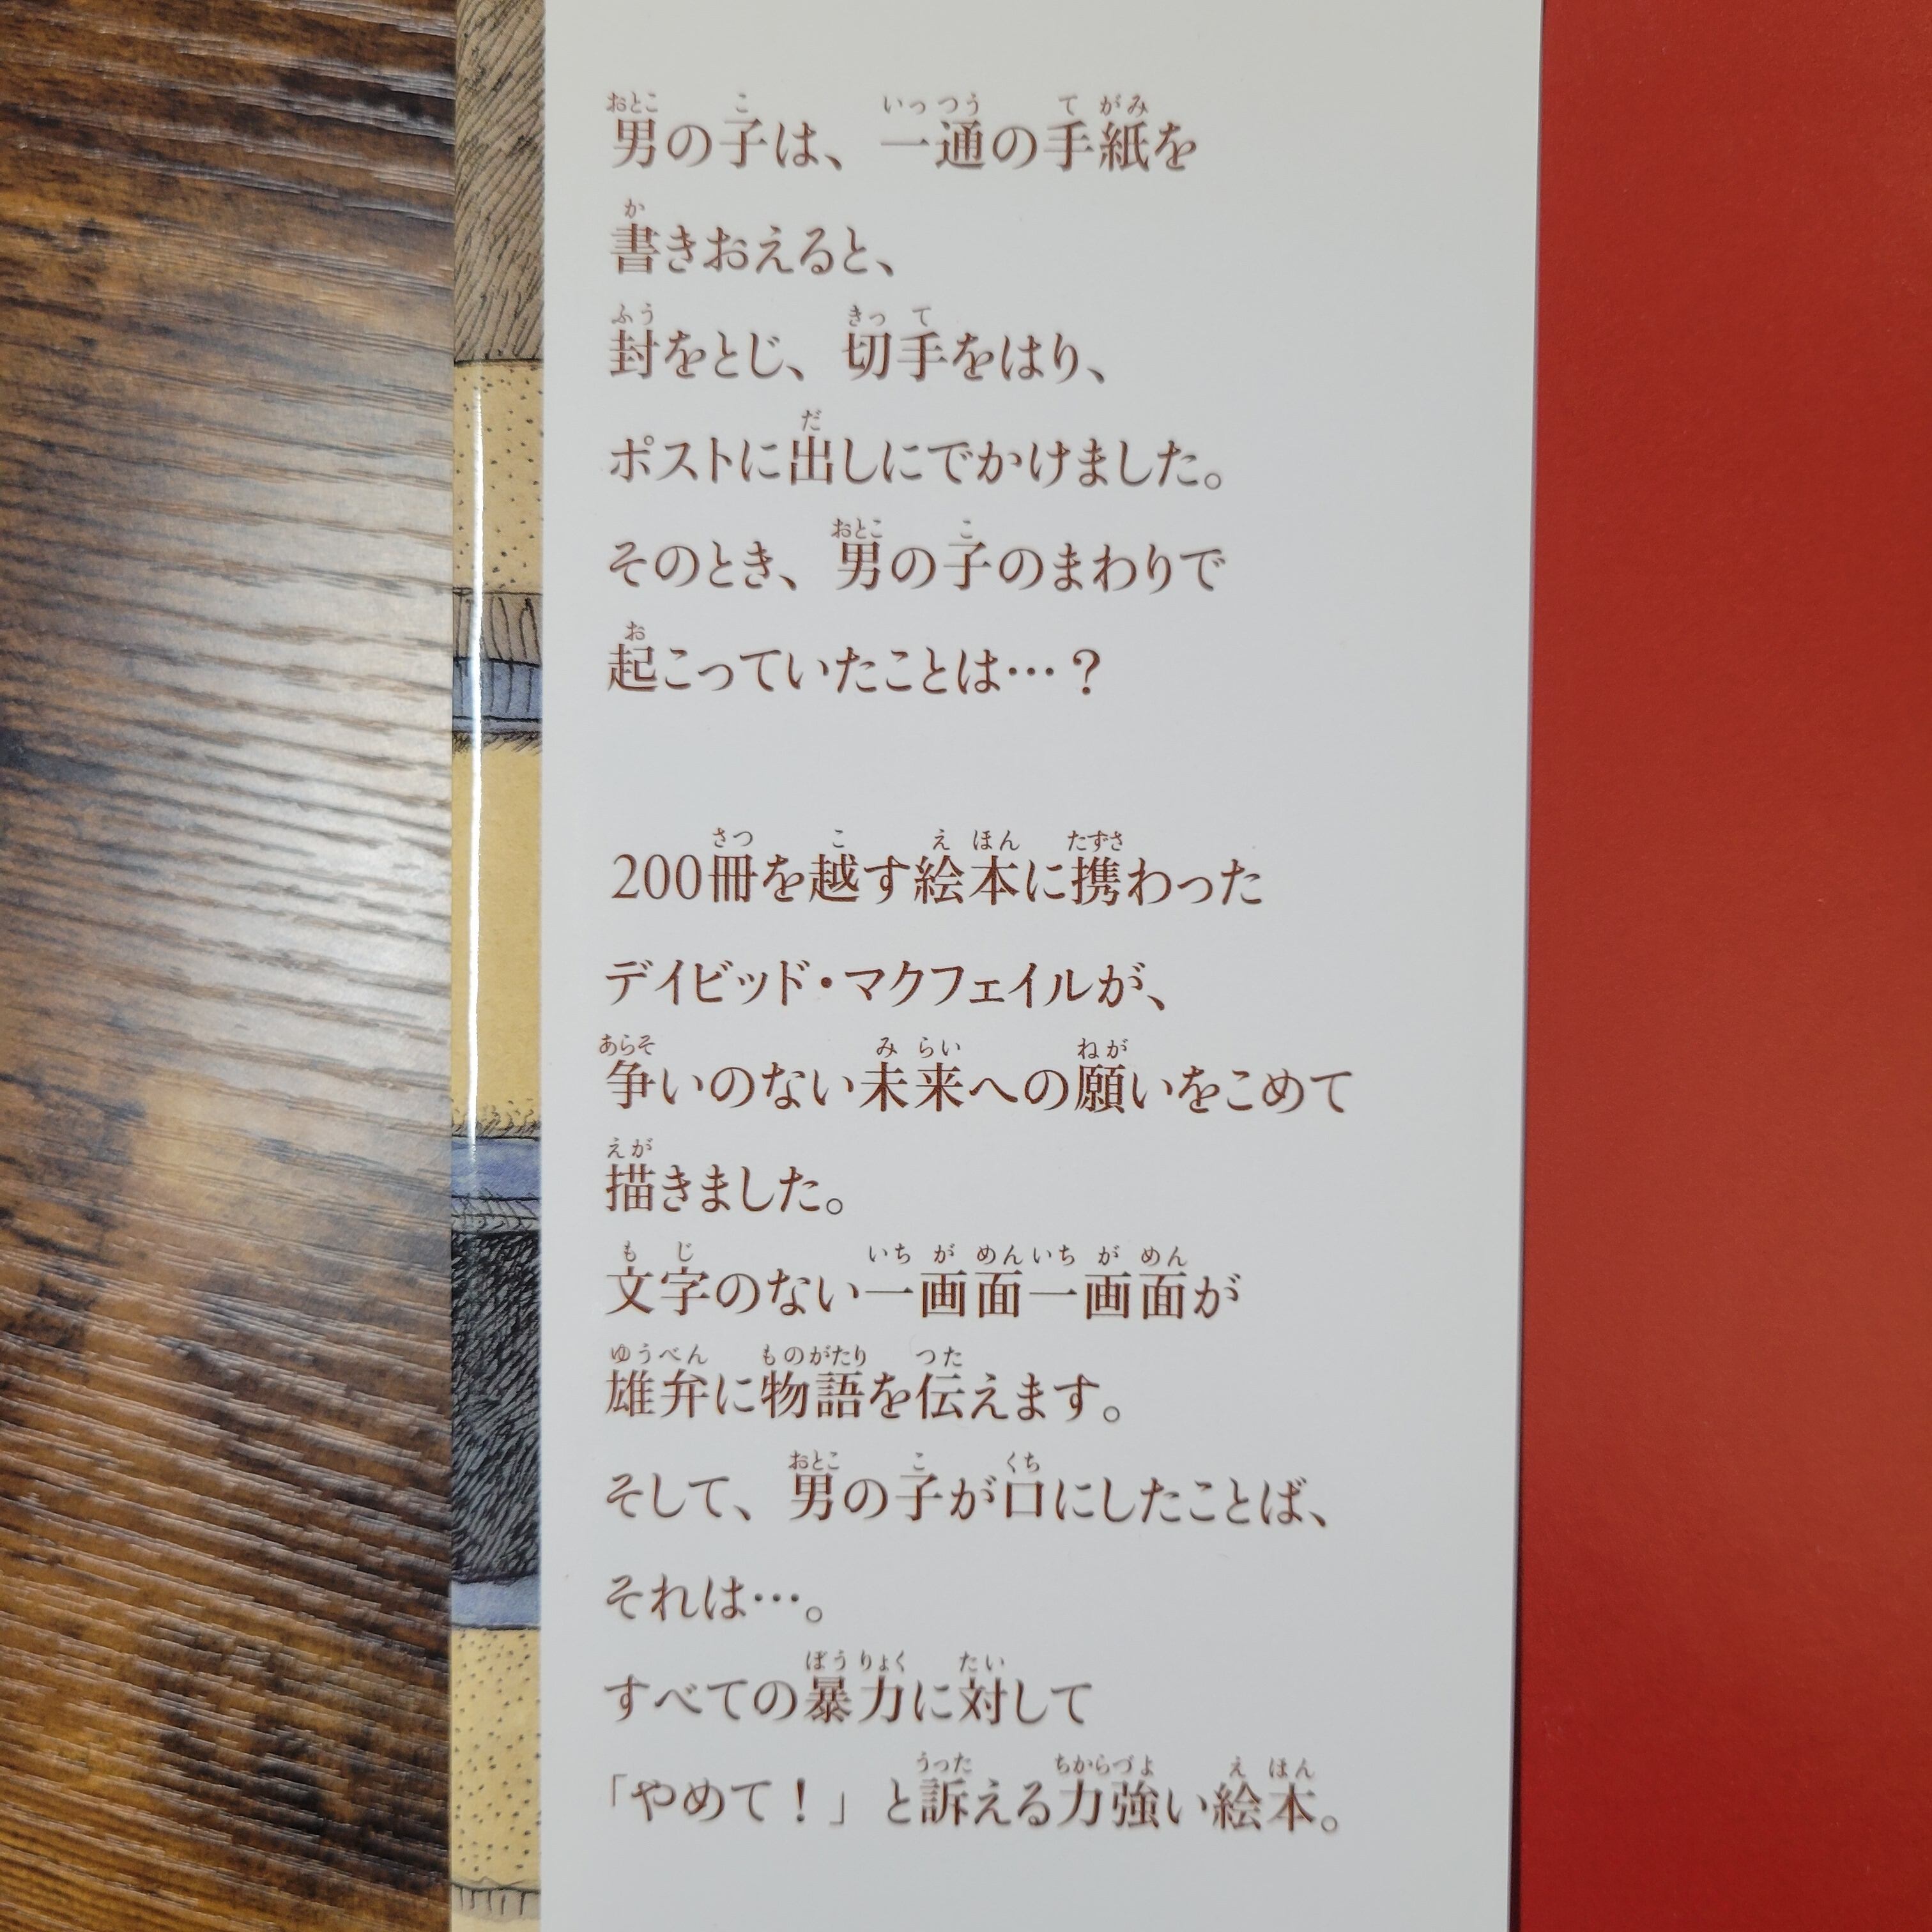 男の子は、一通の手紙を
書きおえると、
封をとじ、切手をはり、
ポストに出しにでかけました。
そのとき、男の子のまわりで
起こっていたことは…？
200冊を越す絵本に携わった
デイビッド・マクフェイルが、
争いのない未来への願いをこめて
描きました。
文字のない一画面一画面が
雄弁に物語を伝えます。
そして、男の子が口にしたことば、
それは…。
すべての暴力に対して
「やめて！」と訴える力強い絵本。